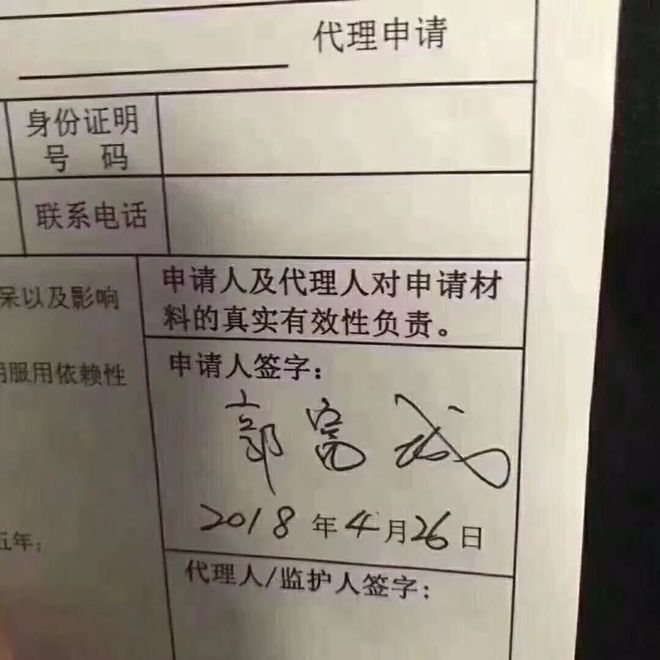 代理申请
身份证明
号 码
联系电话
呆以及影响
申请人及代理人对申请材
料的真实有效性负责。
用服用依赖性
申请人签字：
郭富城
2018年4月26日
五年；
代理人/监护人签字：